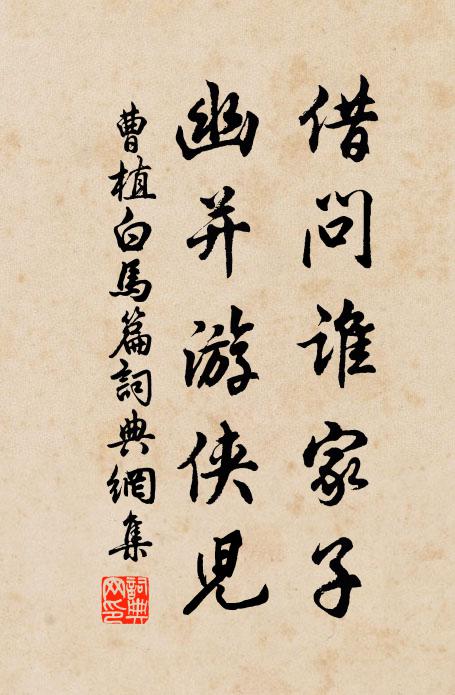 借問誰家子
幽并游俠児
曹植白馬篇詞典網集
詞典網印